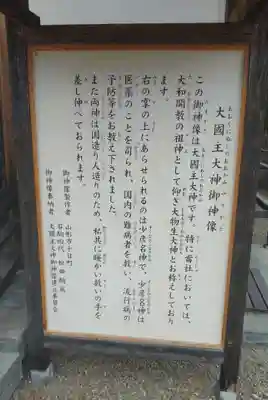 大國主大神御神像
この御神像は大國主大神です。特に當社においては、
大和開教の祖神として仰ぎ大物主大神とお称えしており
ます。
右の掌の上にあらせられるのは少彦名神で、少彦名神は
医薬のことを司られ、国内の難病者を救い、流行病の
予防等をお教え下されました。
また両神は国造り人造りのため、私共に暖かい救いの手を
差し伸べておられます。
御神像製作者
御神像奉納者
大國主大神御神像建立委員会